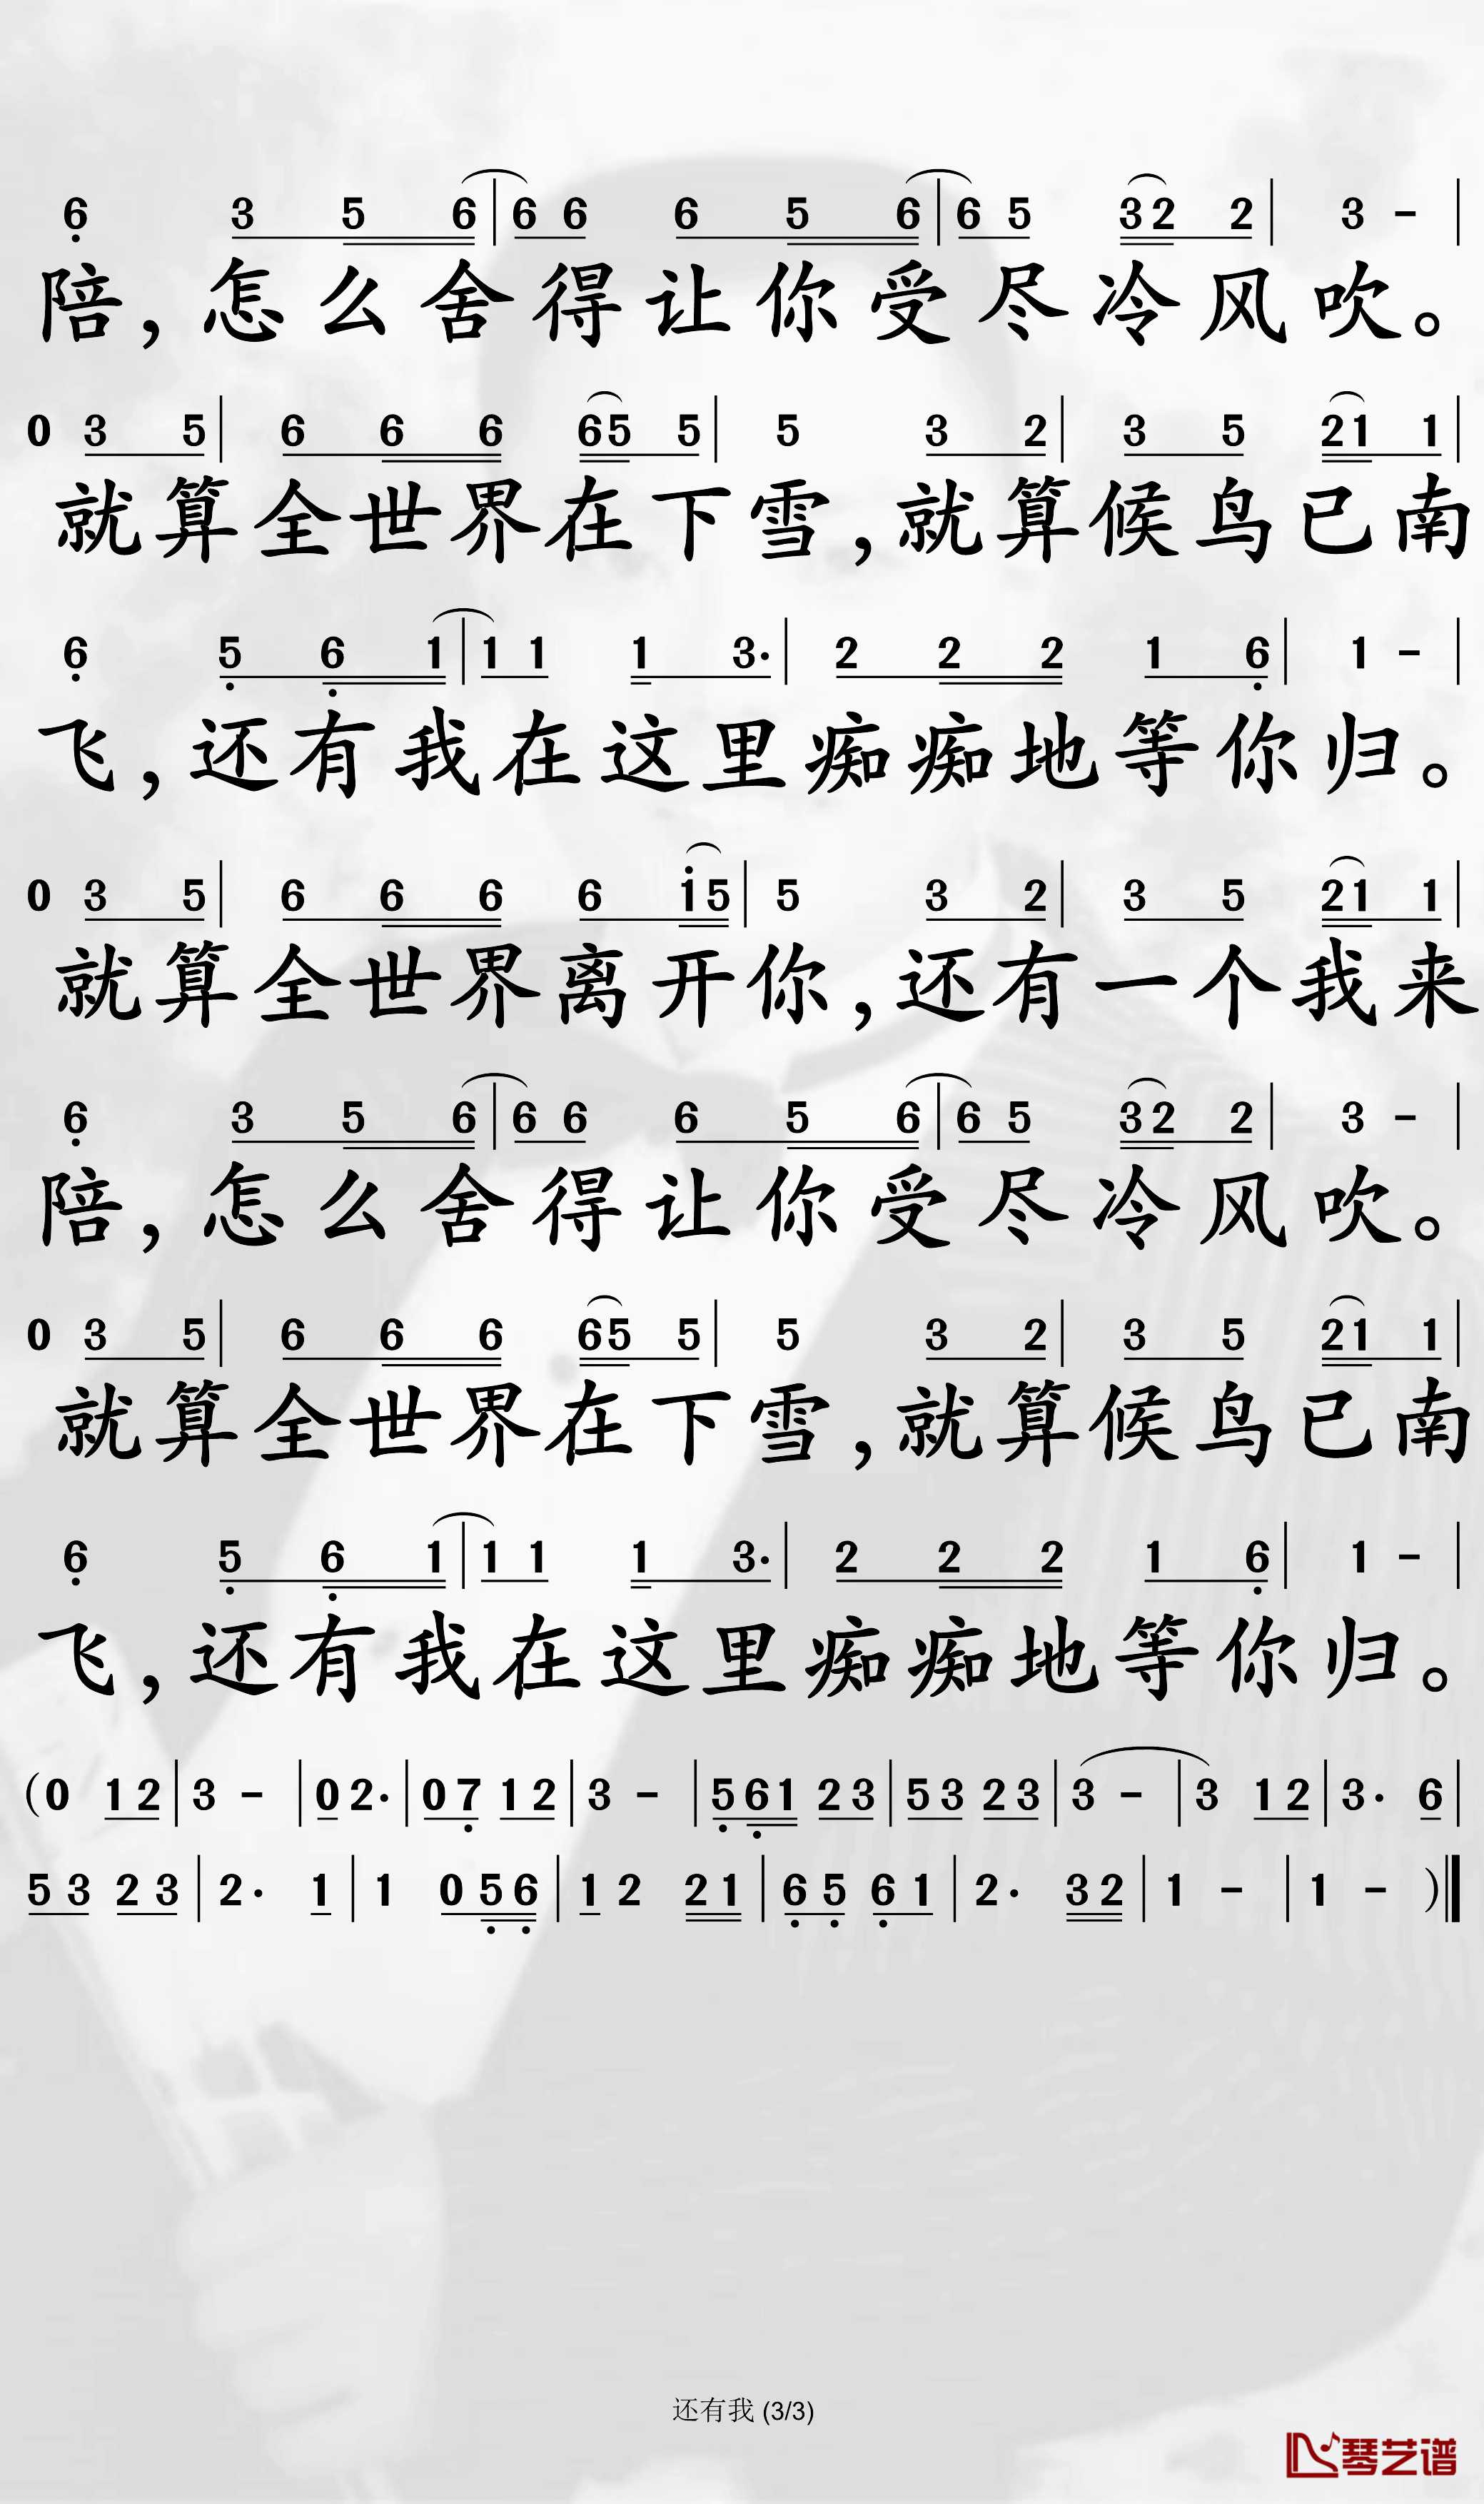 6 3 5 6 | 6 6 6 5 6 | 6 5 3 2 2 | 3 – |
陪，怎么舍得让你受尽冷风吹。
0 3 5 | 6 6 6 6 5 5 | 5 3 2 | 3 5 2 1 1 |
就算全世界在下雪，就算候鸟已南
6 5 6 1 | 1 1 1 3· | 2 2 2 1 6 | 1 – |
飞，还有我在这里痴痴地等你归。
0 3 5 | 6 6 6 6 1 5 | 5 3 2 | 3 5 2 1 1 |
就算全世界离开你，还有一个我来
6 3 5 6 | 6 6 6 5 6 | 6 5 3 2 2 | 3 – |
陪，怎么舍得让你受尽冷风吹。
0 3 5 | 6 6 6 6 5 5 | 5 3 2 | 3 5 2 1 1 |
就算全世界在下雪，就算候鸟已南
6 5 6 1 | 1 1 1 3· | 2 2 2 1 6 | 1 – |
飞，还有我在这里痴痴地等你归。
(0 1 2 | 3 – | 0 2· | 0 7 1 2 | 3 – | 5 6 1 2 3 | 5 3 2 3 | 3 – | 3 1 2 | 3· 6 |
5 3 2 3 | 2· 1 | 1 0 5 6 | 1 2 2 1 | 6 5 6 1 | 2· 3 2 | 1 – | 1 – )‖
还有我 (3/3)
琴艺谱